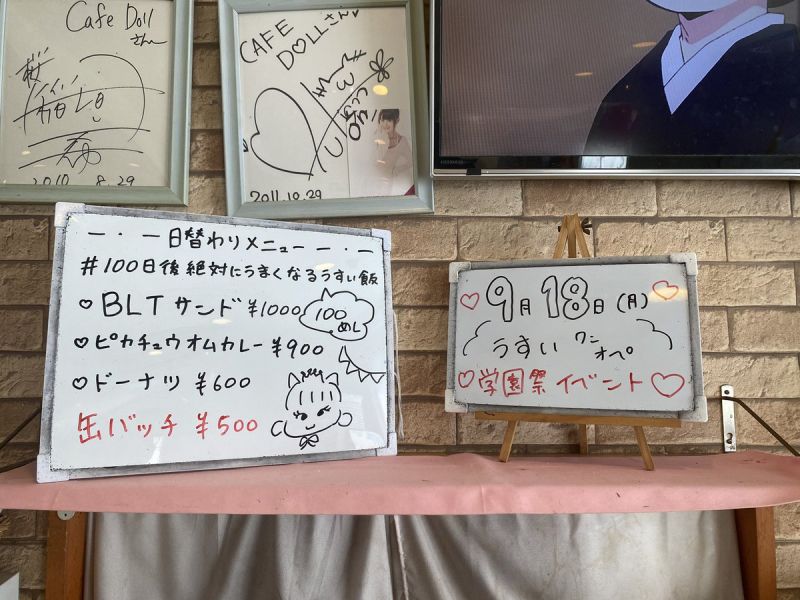 Cafe Doll
さんへ
桜
2010 8.29
CAFE
DOLLさん
2011.10.29
一・一日替わりメニュー一・一
#100日後絶対にうまくなるうすい飯
♡BLTサンド ¥1000
100
めし
♡ピカチュウオムカレー ¥900
♡ドーナツ ¥600
缶バッチ ¥500
♡9月18日(月)♡
うすい ワン
オペ
♡学園祭イベント♡